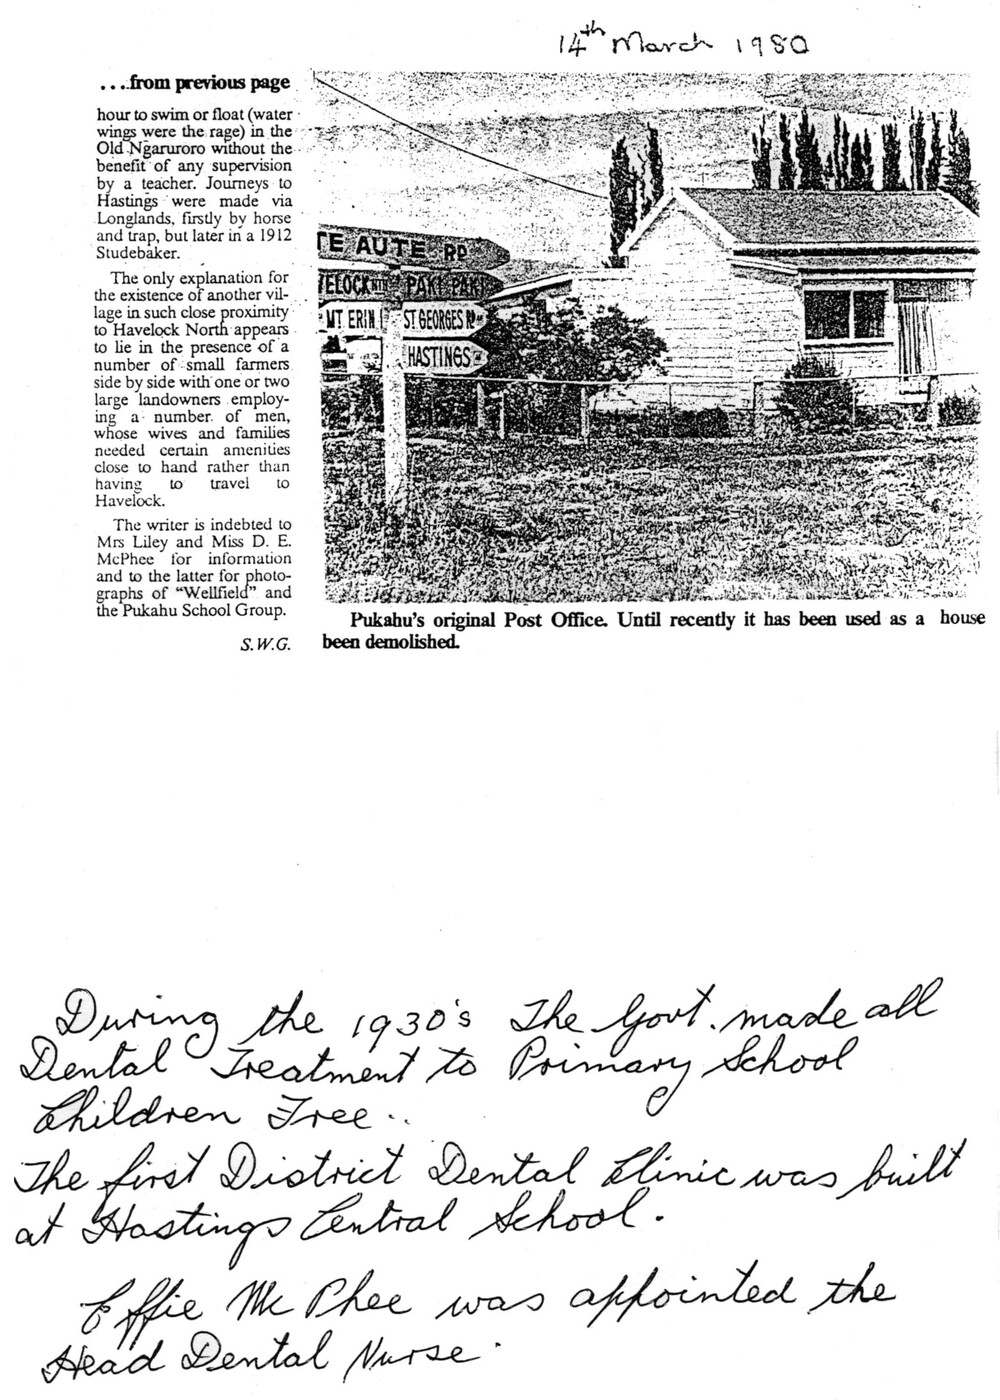 14th March 1980
...from previous page
hour to swim or float (water
wings were the rage) in the
Old Ngaruroro without the
benefit of any supervision
by a teacher. Journeys to
Hastings were made via
Longlands, firstly by horse
and trap, but later in a 1912
Studebaker.
The only explanation for
the existence of another vil-
lage in such close proximity
to Havelock North appears
to lie in the presence of a
number of small farmers
side by side with one or two
large landowners employ-
ing a number of men,
whose wives and families
needed certain amenities
close to hand rather than
having to travel to
Havelock.
The writer is indebted to
Mrs Liley and Miss D. E.
McPhee for information
and to the latter for photo-
graphs of “Wellfield” and
the Pukahu School Group.
S.W.G.
TE AUTE RD
ELOCK NTH PAKI PAKI
MT ERIN ST GEORGES RD
HASTINGS
Pukahu's original Post Office. Until recently it has been used as a house
been demolished.
During the 1930's The Govt. made all
Dental Treatment to Primary School
Children Free..
The first District Dental Clinic was built
at Hastings Central School.
Effie McPhee was appointed the
Head Dental Nurse.